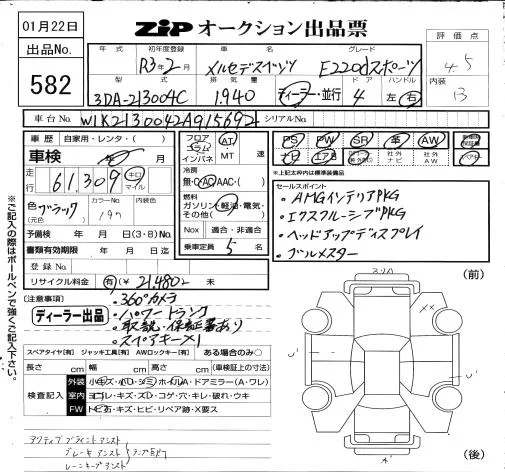 01月22日
ZiP オークション出品票
評価点
4.5
出品No.
582
年式
初年度登録
車名
グレード
R3年2月
メルセデスベンツ
E220dスポーツ
内装
B
型式
排気量
ドア
ハンドル
3DA-213004C
1.940
ディーラー・並行
4
左・右
車台No.
W1K2130042A915692
シリアルNo.
車歴
自家用・レンタ・( )
車検
年 月
走行
61,309
キロ
マイル
色(元色)
ブラック
カラーNo.
197
内装色
予備検 年 月 日(3・8)No.
書類有効期限 年 月 日迄
登録No.
リサイクル料金
有(¥21480) 未
フロア
コラム
インパネ
AT
MT
速
冷房
無・AC・AAC・( )
燃料
ガソリン・軽油・電気・
その他( )
Nox
適合・非適合
乗車定員 5 名
PS
PW
SR
革
AW
ナビ
エアB
社外ナビ
社外AW
※上記太枠内は標準装備品
セールスポイント
・AMGインテリアPKG
・エクスクルーシブPKG
・ヘッドアップディスプレイ
・ブルメスター
(注意事項)
ディーラー出品
・360°カメラ
・パワートランク
・取説・保証書あり
・スペアキー×1
スペアタイヤ[有] ジャッキ工具[有] AWロックキー[有] ある場合のみ○
長さ cm 幅 cm 高さ cm (車検証上の寸法)
検査記入
外装
小キズ・ボロ・シミ・ホイルA・ドアミラー(A・ワレ)
室内
ヨゴレ・キズ・スレ・コゲ・穴・キレ・破れ・ウキ
FW
トビ石・キズ・ヒビ・リペア跡・X要ス
アクティブブラインドアシスト
ブレーキアシスト
レーンキープアシスト
(前)
(後)
※ご記入の際はボールペンで強くご記入下さい。